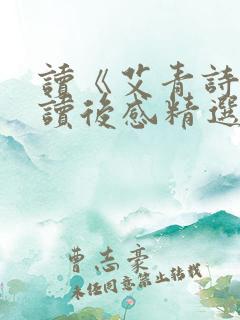 讀《艾青詩
讀後感精選
曹志豪
未經同意禁止轉載